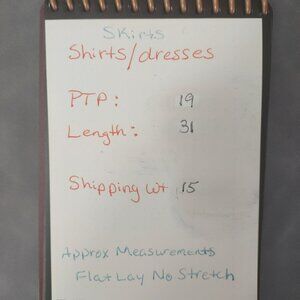 Skirts
Shirts/dresses
PTP: 19
Length: 31
Shipping wt 15
Approx Measurements
Flat Lay No Stretch